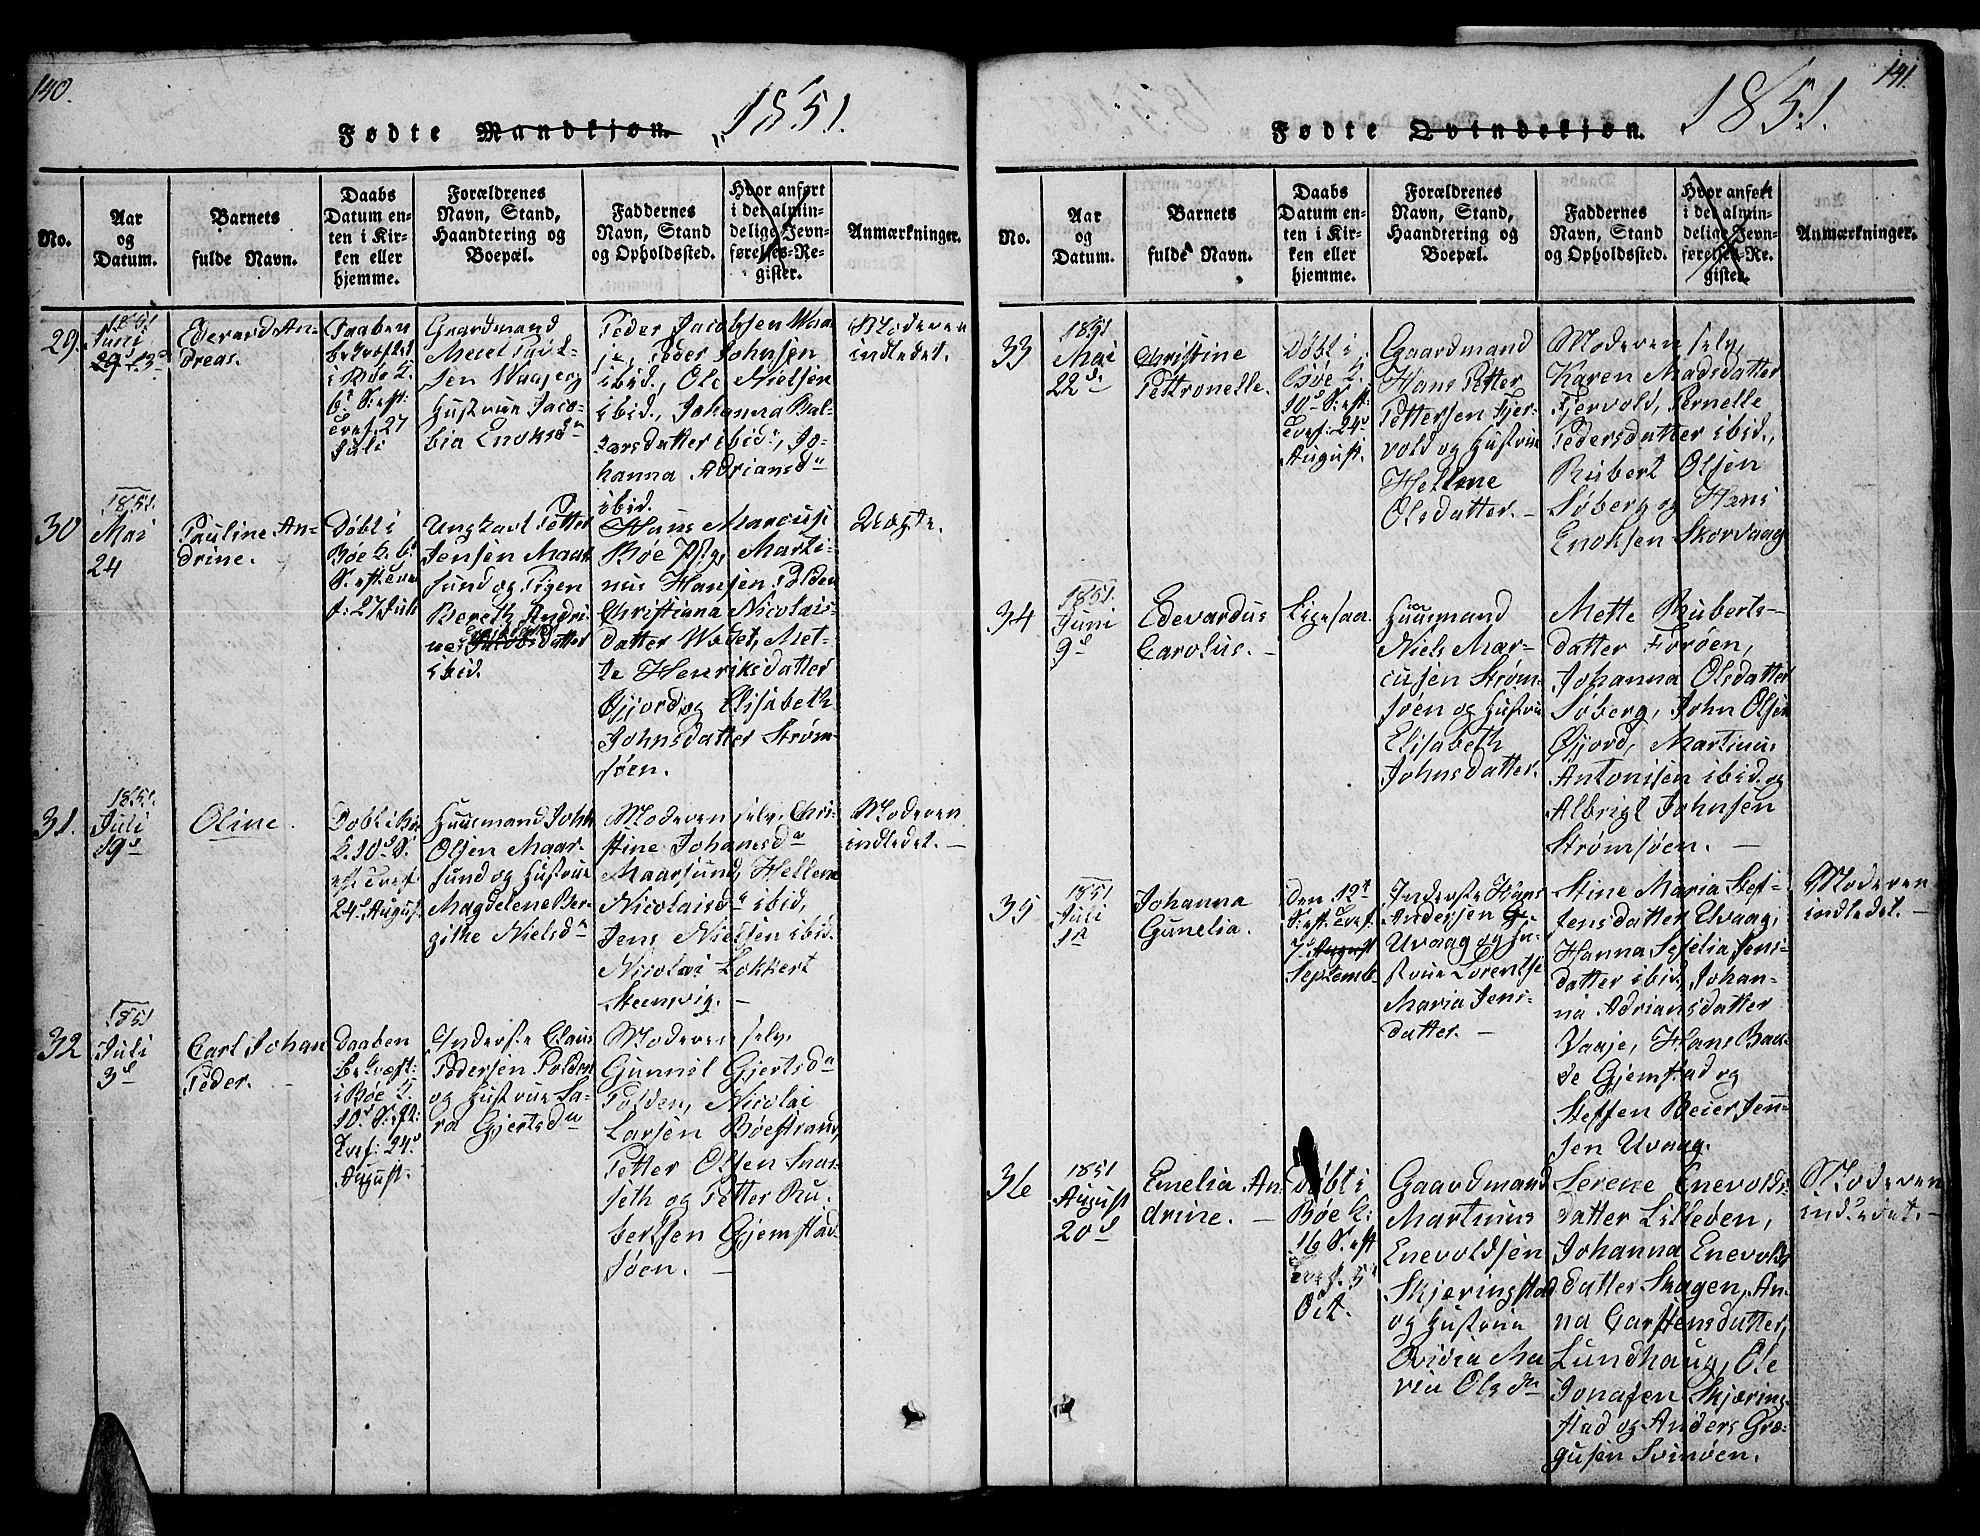 140.
Fødte Mandkjøn. 1851.
No.
Aar
og
Datum.
Barnets
fulde Navn.
Daabs
Datum en-
ten i Kir-
ken eller
hjemme.
Forældrenes
Navn, Stand,
Haandtering og
Boepæl.
Faddernes
Navn, Stand
og Opholdssted.
Hvor anført
i det almin-
delige Jevn-
førelses-Re-
gister.
Anmærkninger.
29.
1851
Juni
Ederard An-
dreas.
Daaben
i Bøe K.
6te S. eft:
Tref. 27
Juli
Gaardmand
sen Waaje og
Hustrue Jaco-
bia Enoksdn
Peder Jacobsen Waa-
je, Peder Johnsen
ibid., Ole Nielsen
ibid., Johanna Bal-
tzersdatter ibid:, Jo-
hanna Adriansdn
ibid.
Moderen
indledet.
30
1851.
Mai
24
Pauline An-
drine.
Døbt i
Bøe K. 6te
S. eft Tref
f: 27 Juli
Ungkarl Petter
Jensen Maar-
sund og Pigen
Bereth Andri-
ne datter
ibid.
Hans Marcusen
Bøe Pstg, Marti-
nus Hansen Polden
Christiana Nicolais-
datter Wadet, Met-
te Henriksdatter
Øjord og Elisabeth
Johnsdatter Strøm-
søen.
Uægte.
31.
1851.
Juli
19d
Oline.
Døbt i Bø
K. 10d S.
eft Tref
24d August
Huusmand John
Olsen Maar-
sund og Hustrue
Magdelene Ber-
githe Nielsdn
Moderen selv, Chri-
stine Johansdn
Maarsund, Hellene
Nicolaisdn ibid,
Jens Nielsen ibid.
Nicolai Lokkert
Steensvig. —
Moderen
indledet. —
32
1851
Juli
3d
Carl Johan
Peder. —
Daaben
bekræft:
i Bøe K.
10d S. eft:
Tref: 24d
August.
Inderste Claus
Pedersen Polden
og Hustrue Sa-
ra Gjertsdn
Moderen selv,
Gunnil Gjertsdn
Polden, Nicolai
Larsen Bøestrand,
Petter Olsen Snar-
seth og Petter Ru-
bertsen Gjemstad-
søen. —
141.
Fødte Qvindekjøn. 1851.
No.
Aar
og
Datum.
Barnets
fulde Navn.
Daabs
Datum en-
ten i Kir-
ken eller
hjemme.
Forældrenes
Navn, Stand,
Haandtering og
Boepæl.
Faddernes
Navn, Stand
og Opholdssted.
Hvor anført
i det almin-
delige Jevn-
førelses-Re-
gister.
Anmærkninger.
33
1851
Mai
22d
Christine
Pettronelle.
Døbt i
Bøe K.
10d S. eft:
Tref: 24d
August.
Gaardmand
Hans Petter
Pettersen Fjer-
vold og Hustrue
Hellene
Olsdatter. —
Moderen selv,
Karen Madsdatter
Fjervold, Pernelle
Pedersdatter ibid.,
Rubert Olsen
Søberg og Hans
Enoksen Skorvaag
34
1851.
Juni
9d
Edevardus
Carolus. —
Ligesaa.
Huusmand
Niels Mar-
cusen Strøm-
søen og Hustrue
Elisabeth
Johnsdatter.
Mette Ruberts-
datter Forøen,
Johanna Olsdatter
Søberg, John Olsen
Øjord, Martinus
Antonisen ibid. og
Albrigt Johnsen
Strømsøen. —
35
1851
Juli
1d
Johanna
Gunelia.
Den 12te
S. eft Tref.
7d August
Septemb.
Inderste Hans
Andersen
Uvaag og Hu-
strue Lorentse
Maria Jens-
datter. —
Stine Maria Stef-
fensdatter Uvaag,
Hanna Sesilia Jens-
datter ibid, Johan-
na Adriansdatter
Vaaje, Hans Bau-
de Gjemstad og
Steffen Beier Jen-
sen Uvaag.
Moderen
indledet. —
36
1851
August
20d
Emelia An-
drine. —
Døbt i
Bøe K:
16 S. eft
Tref. 5d
Oct.
Gaardmand
Martinus
Enevoldsen
Skjæringstad
og Hustrue
Ovidia Ma-
ria Olsdn
Serene Enevolds-
datter Lilleøen,
Johanna Enevolds-
datter Skagen, An-
na Carstensdatter,
Lundhaug, Ole
Jonasen Skjæring-
stad og Anders Græ-
gusen Svinøen.
Moderen
indledet. —